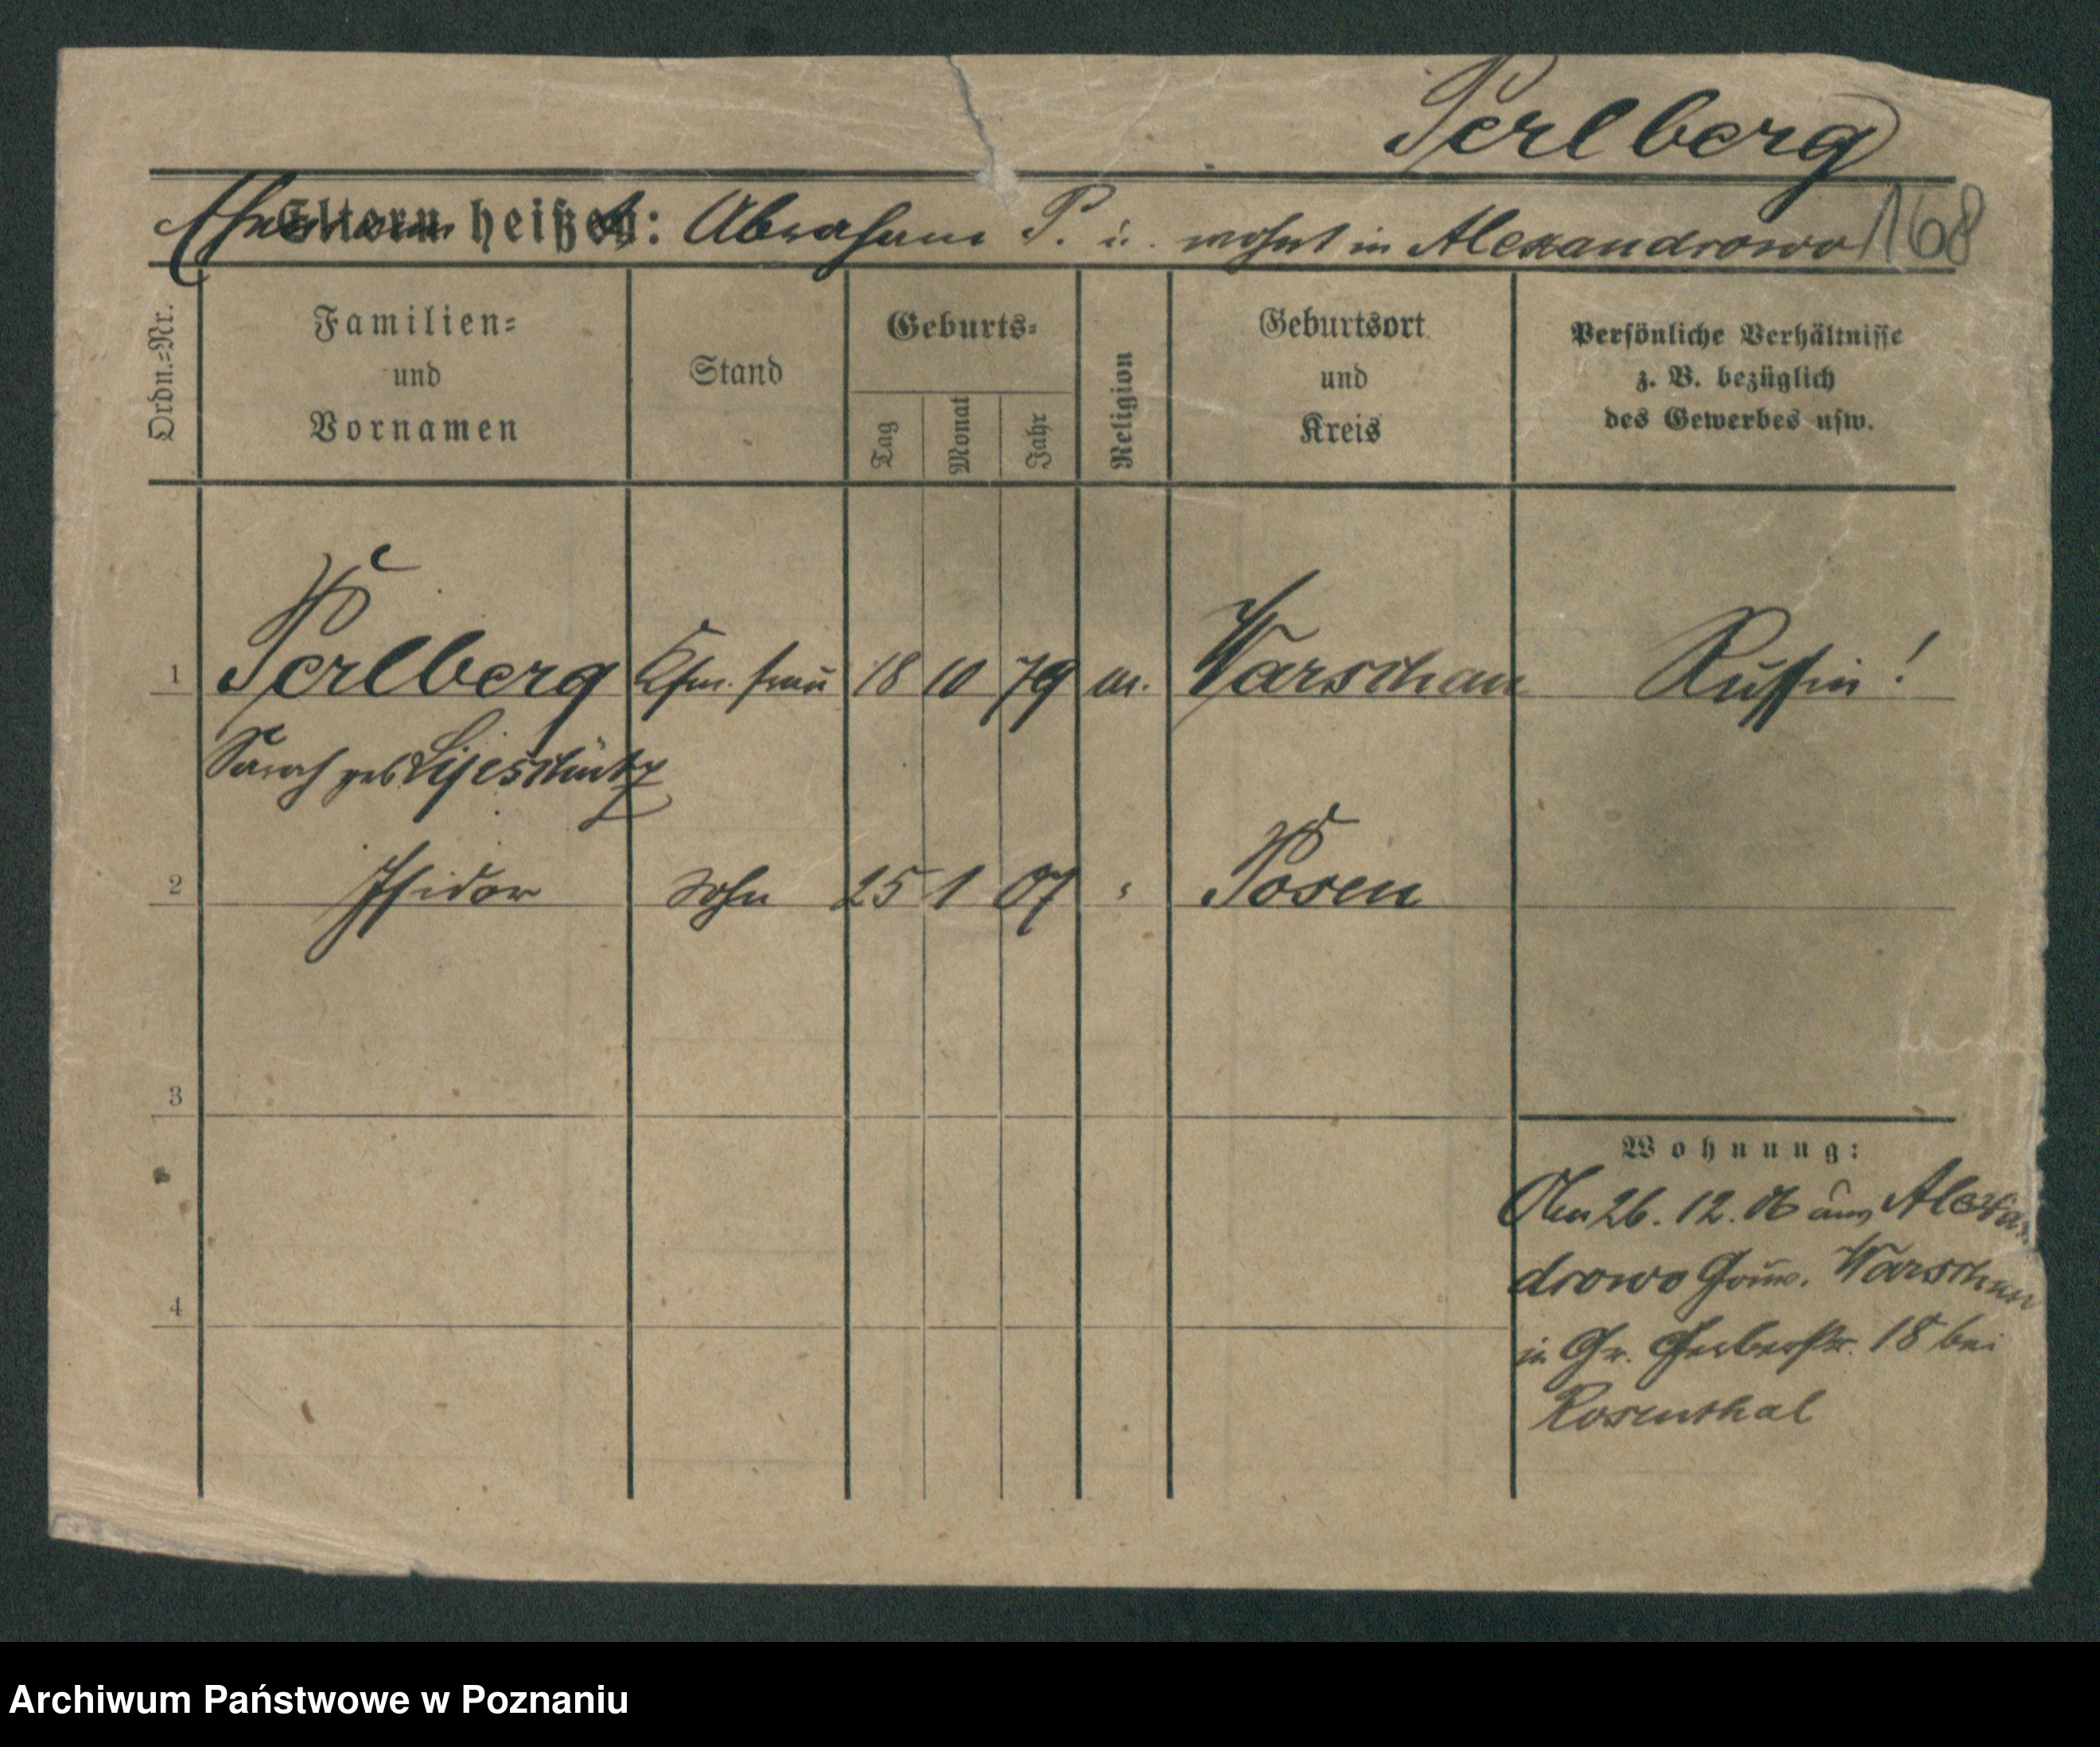 Perlberg
168
Ehemann heißt: Abraham P. u. wohnt in Alexandrowo
Ordn.=Nr.
Familien=
und
Vornamen
Stand
Geburts=
Tag
Monat
Jahr
Religion
Geburtsort
und
Kreis
Persönliche Verhältnisse
z. B. bezüglich
des Gewerbes usw.
1 Perlberg Kfm. frau 18 10 79 m. Warschau Russin!
Sarah geb
2 Isidor Sohn 25 1 07 " Posen
3
Wohnung:
26. 12. 06 aus Alexan
drowo Gouv. Warschau
4
in Gr. Gerberstr. 18 bei
Rosenthal
Archiwum Państwowe w Poznaniu